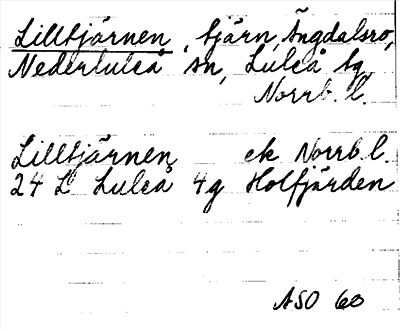 Lilltjärnen, tjärn, Ängdalsro,
Nederluleå sn, Luleå tg
Norrb. l.
Lilltjärnen ek Norrb. l.
24 L Luleå 4g Holfjärden
ASO 60